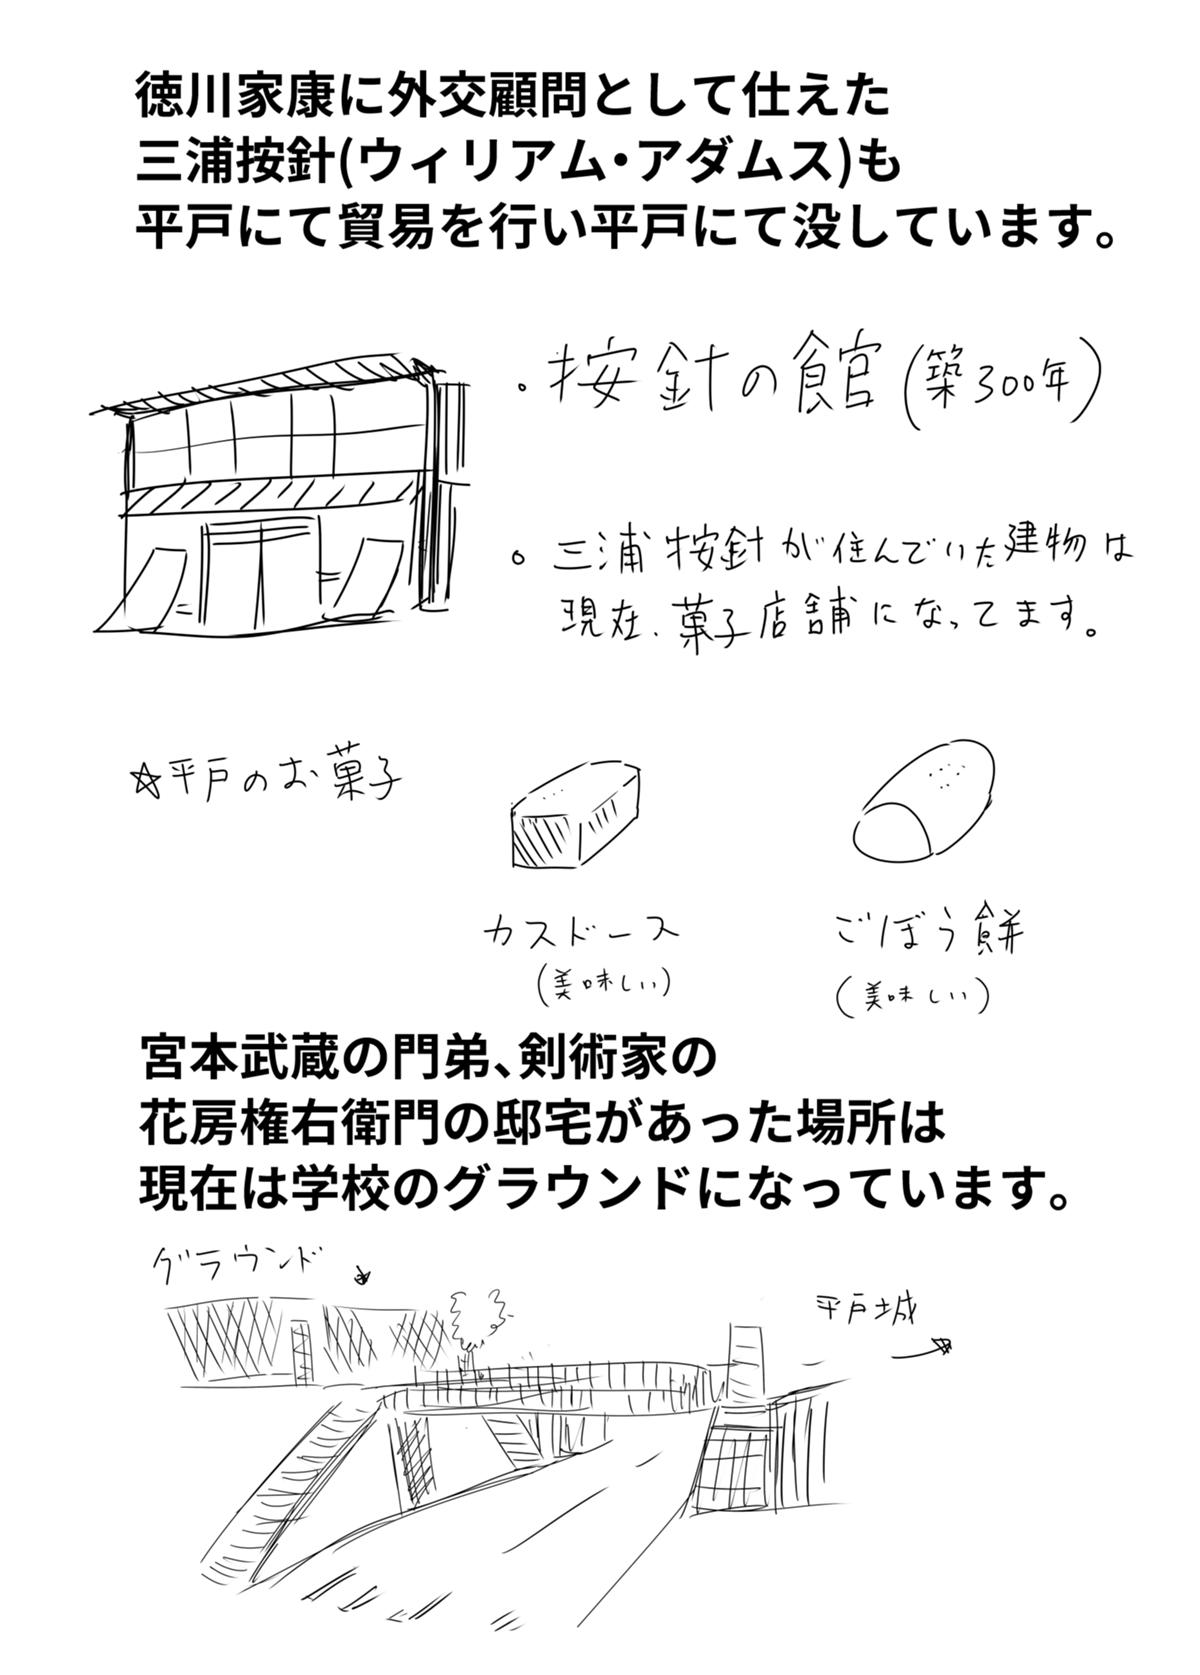 徳川家康に外交顧問として仕えた
三浦按針(ウィリアム・アダムス)も
平戸にて貿易を行い平戸にて没しています。
・按針の館(築300年)
。三浦按針が住んでいた建物は
現在、菓子店舗になってます。
☆平戸のお菓子
カスドース
(美味しい)
ごぼう餅
(美味しい)
宮本武蔵の門弟、剣術家の
花房権右衛門の邸宅があった場所は
現在は学校のグラウンドになっています。
グラウンド
平戸城